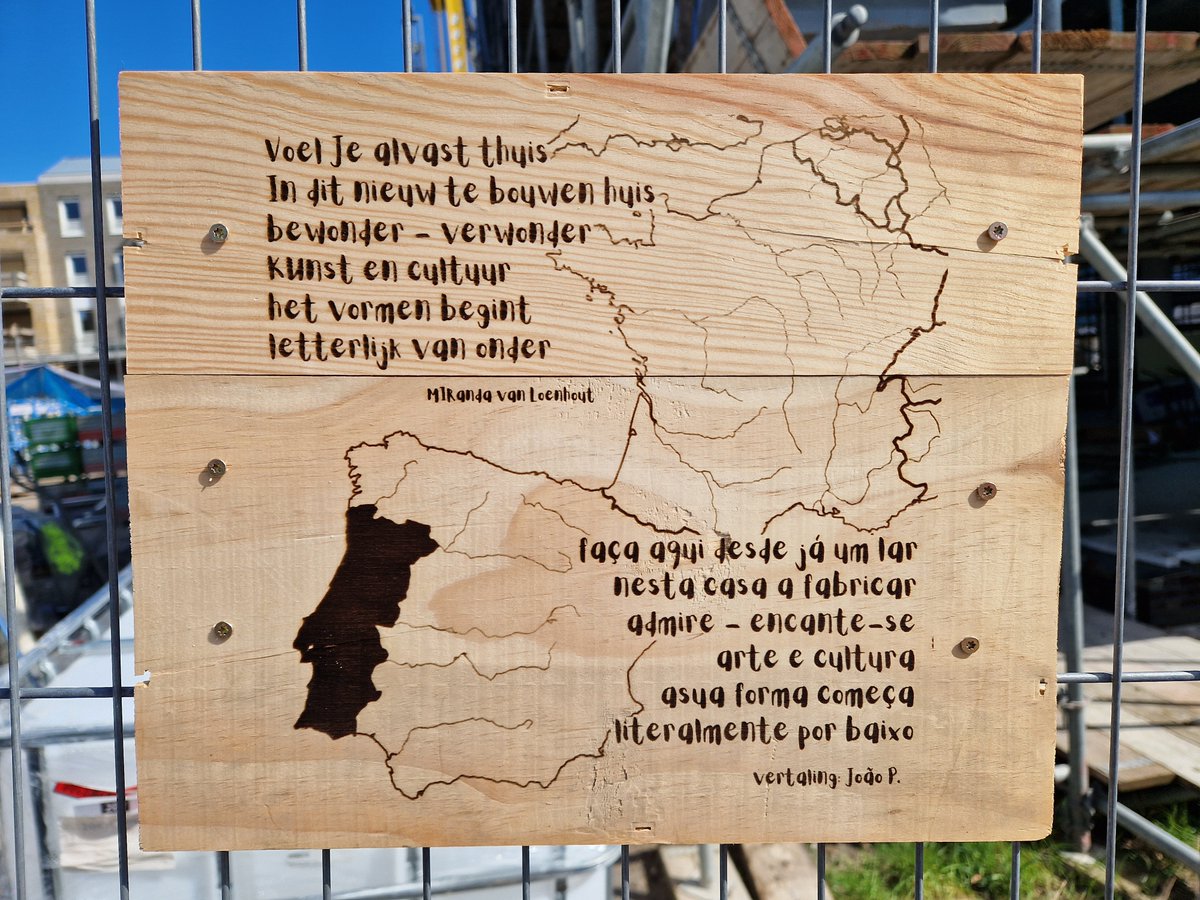 Voel Je alvast thuis
In dit nieuw te bouwen huis
bewonder - verwonder
Kunst en cultuur
het vormen begint
letterlijk van onder
MIRanda van Loenhout
faça aqui desde já um lar
nesta casa a fabricar
admire - encante-se
arte e cultura
asua forma começa
literalmente por baixo
vertaling: João P.